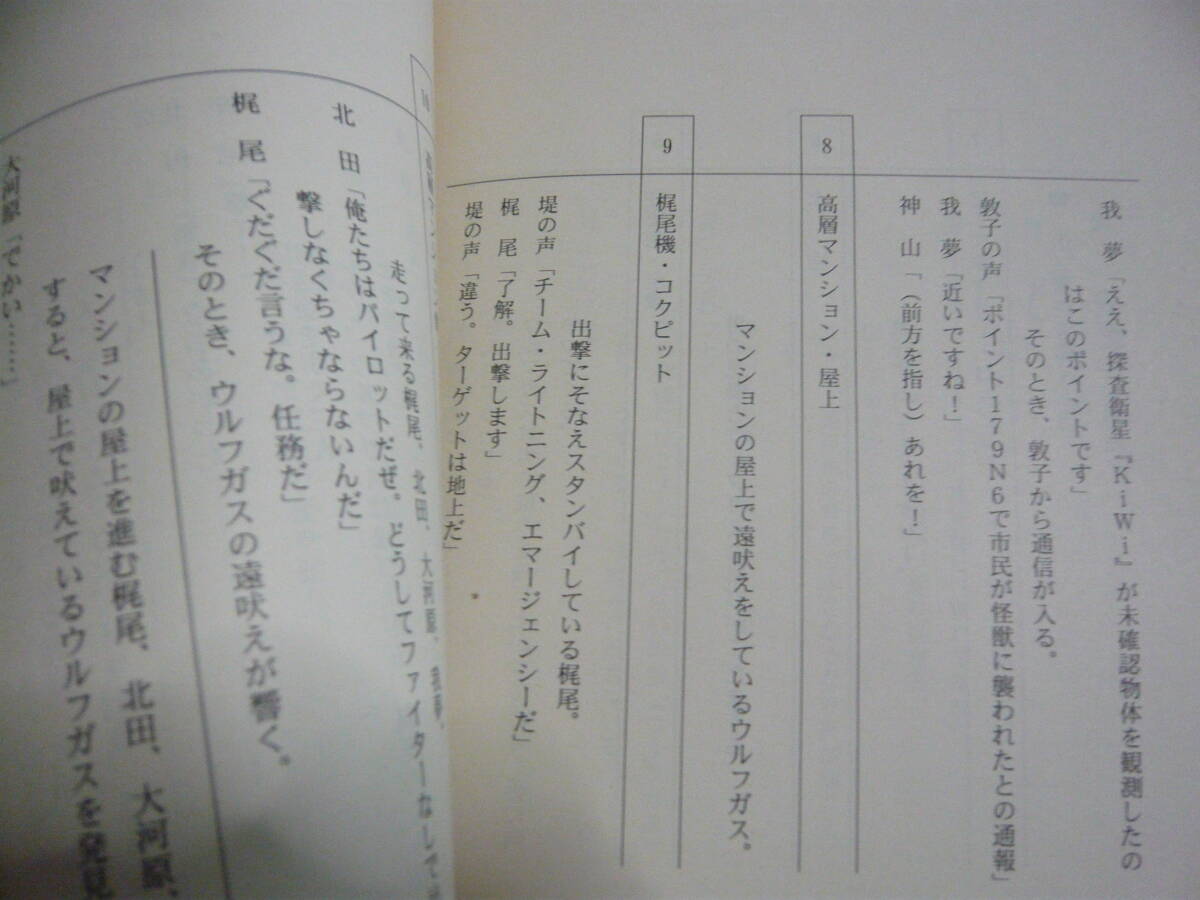 我　夢「ええ、探査衛星『KiWi』が未確認物体を観測したの
はこのポイントです」
そのとき、敦子から通信が入る。
敦子の声「ポイント179N6で市民が怪獣に襲われたとの通報」
我　夢「近いですね！」
神　山「（前方を指し）あれを！」
8　高層マンション・屋上
マンションの屋上で遠吠えをしているウルフガス。
9　梶尾機・コクピット
出撃にそなえスタンバイしている梶尾。
堤の声「チーム・ライトニング、エマージェンシーだ」
梶　尾「了解。出撃します」
堤の声「違う。ターゲットは地上だ」
10
走って来る梶尾、北田、大河原、我夢。
北　田「俺たちはパイロットだぜ。どうしてファイターなしで
撃しなくちゃならないんだ」
梶　尾「ぐだぐだ言うな。任務だ」
そのとき、ウルフガスの遠吠えが響く。
マンションの屋上を進む梶尾、北田、大河原、
すると、屋上で吠えているウルフガスを発見
大河原「でかい……」